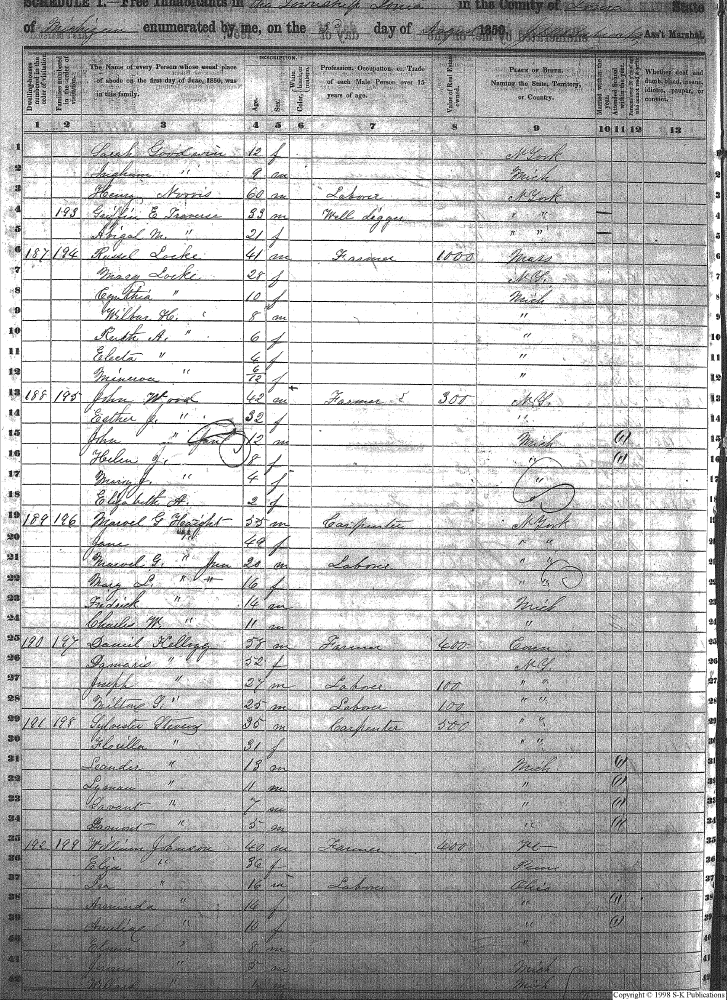 SCHEDULE I.—Free Inhabitants in the Township Ionia in the County of Ionia State
of Michigan enumerated by me, on the day of August 1850. Ass't Marshal.
Dwelling-houses numbered in the order of visitation. Families numbered in the order of visitation. The Name of every Person whose usual place of abode on the first day of June, 1850, was in this family. DESCRIPTION. Age. Sex. Color, White, black, or mulatto. Profession, Occupation, or Trade of each Male Person over 15 years of age. Value of Real Estate owned. PLACE OF BIRTH. Naming the State, Territory, or Country. Married within the year. Attended School within the year. Whether deaf and dumb, blind, insane, idiotic, pauper, or convict.
1 2 3 4 5 6 7 8 9 10 11 12 13
1 Sarah Goodwin 12 f N York
2 Ingham " 9 m Mich
3 Henry Norris 60 m Labover N York
4 193 Griffin E Traverse 33 m Well digger " " —
5 Abigal M. " 21 f " " —
6 187 194 Russel Locke 41 m Farmer 1000 Mass
7 Mary Locke 28 f N.Y.
8 Cynthia " 10 f Mich
9 Wilbur H. " 8 m "
10 Ruth A. " 6 f "
11 Electa " 4 f "
12 Minerva " 6/12 f "
13 188 195 John Wood 42 m Farmer 300 N.Y.
14 Esther J. " 32 f "
15 John " Jun 12 m Mich (1)
16 Helen Y. 8 f " (1)
17 Mary J. " 4 f "
18 Elizabeth A. 2 f
19 189 196 Marvel G Haight 55 m Carpenter N York
20 Jane " 49 f " "
21 Marvel G. " Jun 20 m Labover " "
22 Mary L. " " 16 f " "
23 Fredrick " 14 m Mich
24 Charles W. " 11 m "
25 190 197 Daniel Kellogg 58 m Farmer 400 Conn.
26 Damaris " 52 f N.Y.
27 Joseph " 27 m Labover 100 " "
28 Milton G. " 25 m Labover 100 " "
29 191 198 Sylvester Stevens 35 m Carpenter 500 " "
30 Florilla " 31 f " "
31 Leander " 13 m Mich (1)
32 Lyman " 11 m " (1)
33 " 7 m " (1)
34 " 5 m " (1)
35 192 199 William Johnson 40 m Farmer 400 Vt
36 Eliza " 36 f
37 Ira " 16 m Labover Ohio
38 Arminda " 14 f " (1)
39 Amelia " 10 f " (1)
40 " 8 m "
41 " 5 m Mich
42 m Mich
Copyright © 1998 S-K Publications